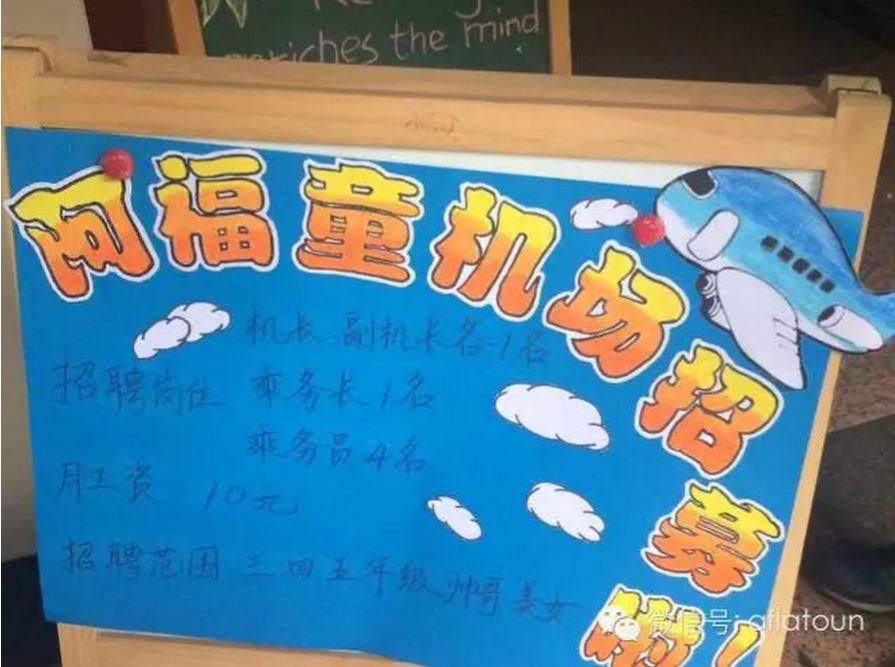 enriches the mind
阿福童机场招募啦!
机长、副机长各1名
招聘岗位 乘务长1名
乘务员4名
月工资 10元
招聘范围 三四五年级帅哥美女
微信号: aflatoun